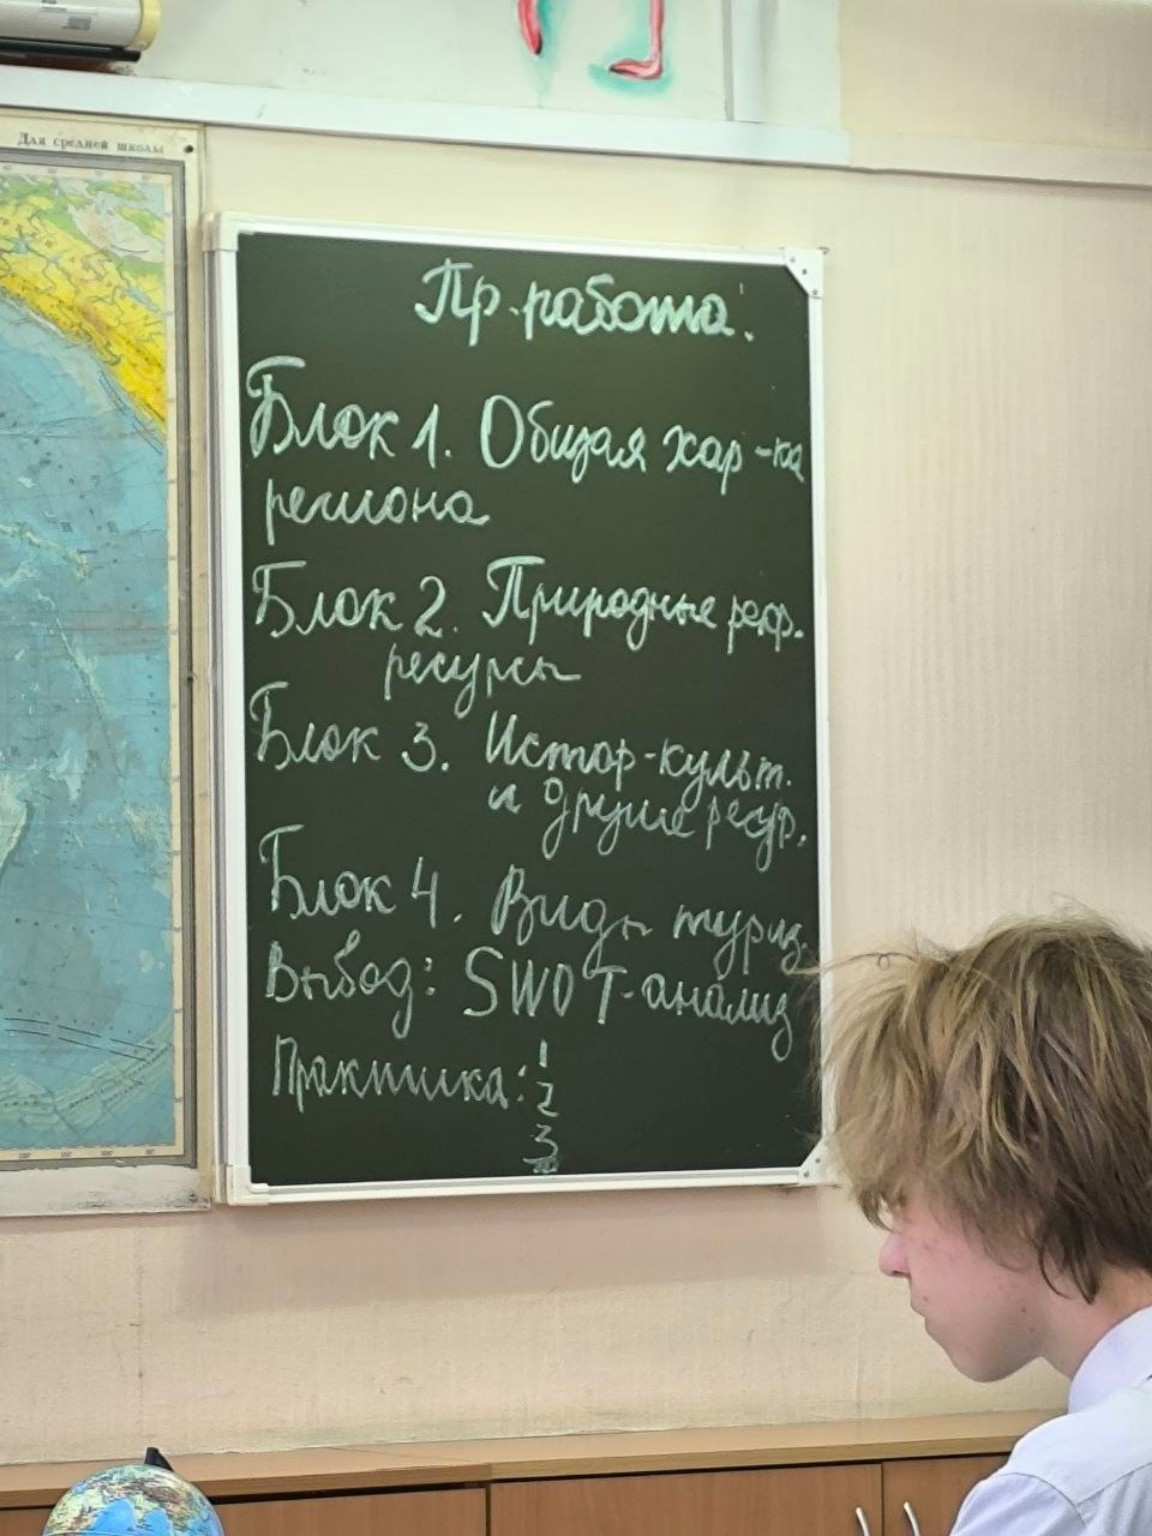 Для средней школы
Пр. работа:
Блок 1. Общая хар-ка
региона
Блок 2. Природные рекр.
ресурсы
Блок 3. Истор-культ.
и другие ресур.
Блок 4. Виды туриз.
Вывод: SWOT-анализ
Практика: 1
2
3